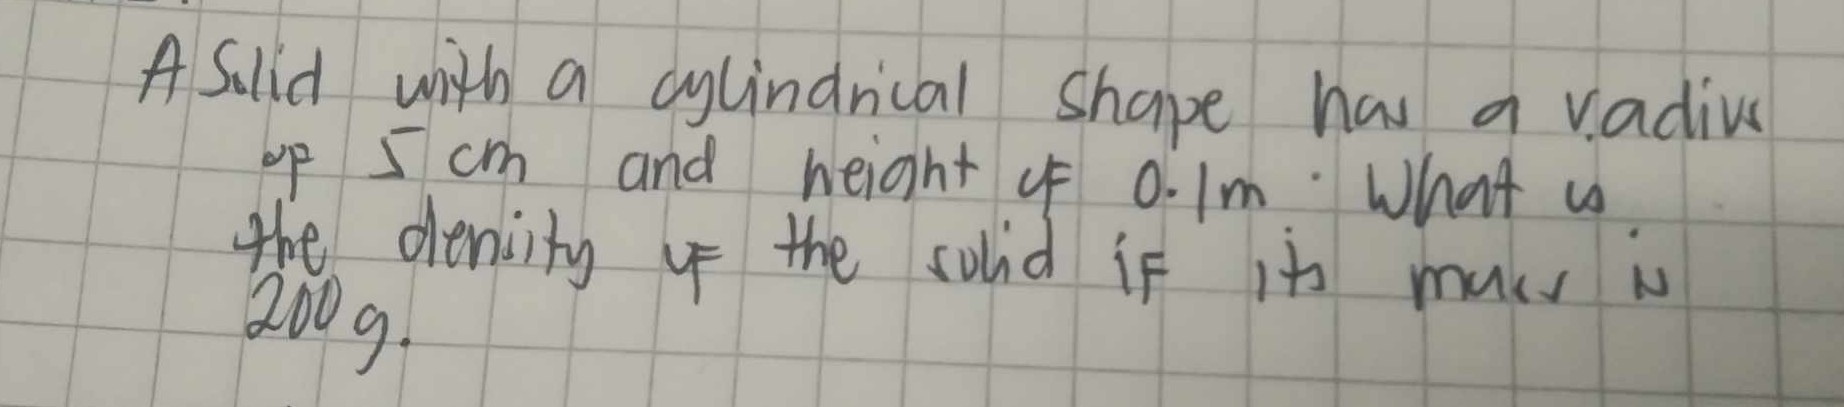 A Solid with a cylindrical shape has a radius
of 5 cm and height of 0.1m. What is
the density of the solid if its mass is
200g.